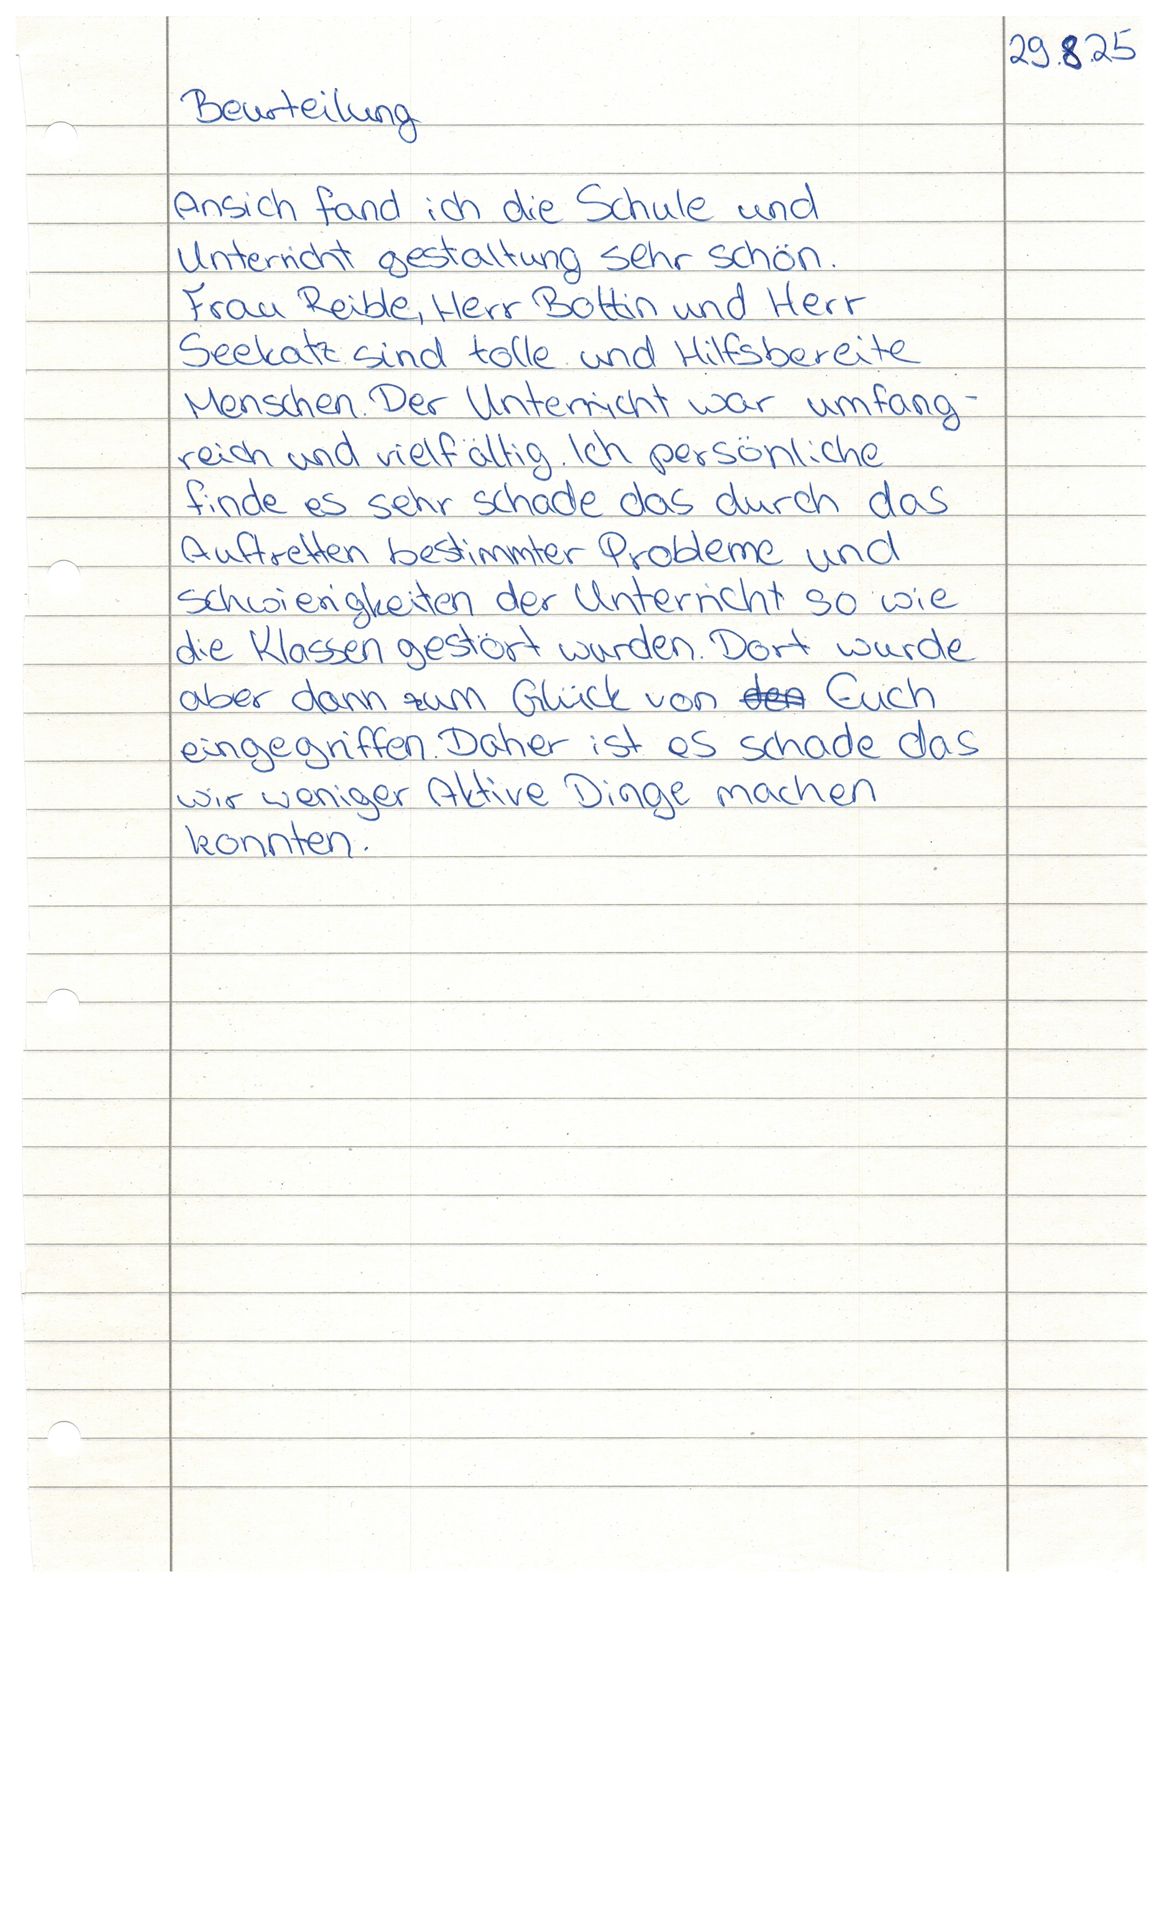 29.8.25
Beurteilung
Ansich fand ich die Schule und
Unterricht gestaltung sehr schön.
Frau Reible, Herr Bottin und Herr
Seekatz sind tolle und Hilfsbereite
Menschen. Der Unterricht war umfang-
reich und vielfältig. Ich persönliche
finde es sehr schade das durch das
Auftretten bestimmter Probleme und
schwierigkeiten der Unterricht so wie
die Klassen gestört wurden. Dort wurde
aber dann zum Glück von den Euch
eingegriffen. Daher ist es schade das
wir weniger Aktive Dinge machen
konnten.